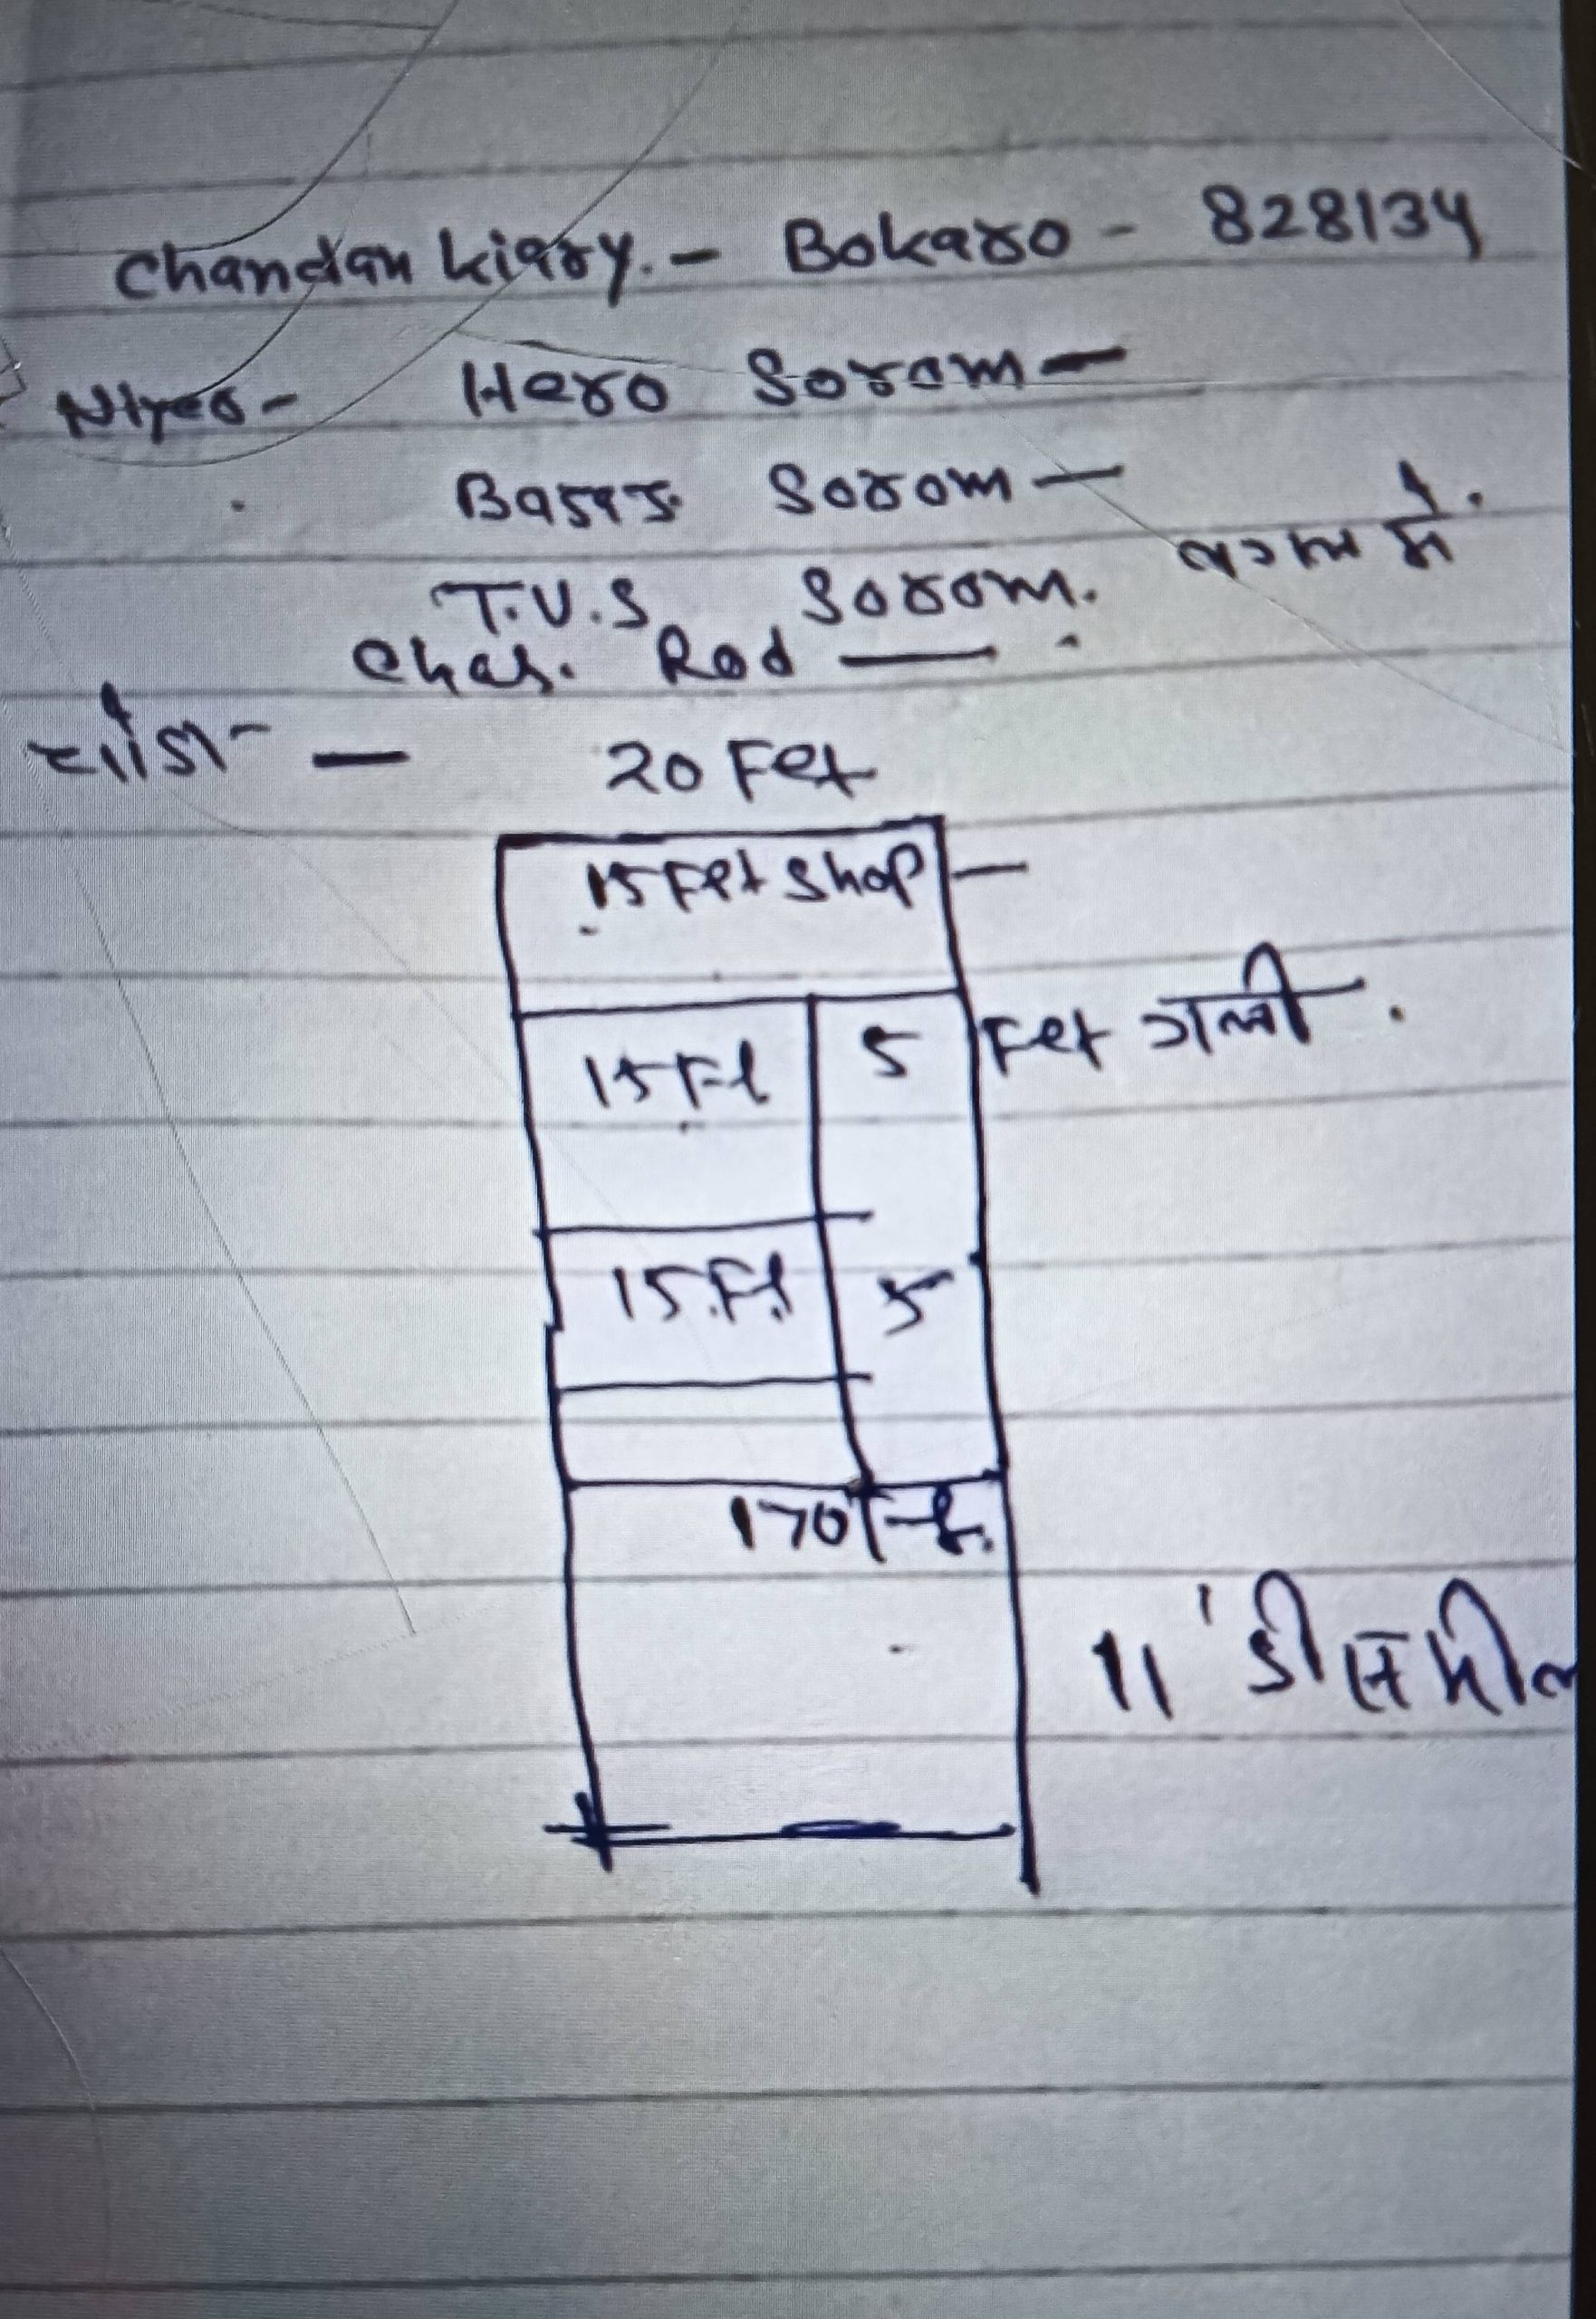 Chandan kiary. - Bokaro - 828134
Hero Sorom -
Sorom -
T.V.S Sorom. बगल में.
Chas. Rod —
— 20 Fet
15 Fet Shop —
15 Ft 5 Fet गली.
15 Ft 5
170 Ft.
11 डीसमील